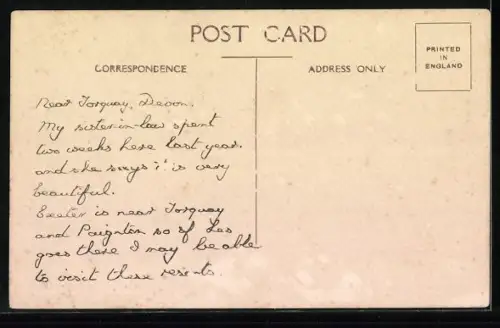 POST CARD
CORRESPONDENCE
ADDRESS ONLY
PRINTED
IN
ENGLAND
Near Torquay, Devon.
My sister-in-law spent
two weeks here last year.
and she says it is very
beautiful.
Exeter is near Torquay
and Paignton so if Les
goes there I may be able
to visit these resorts.